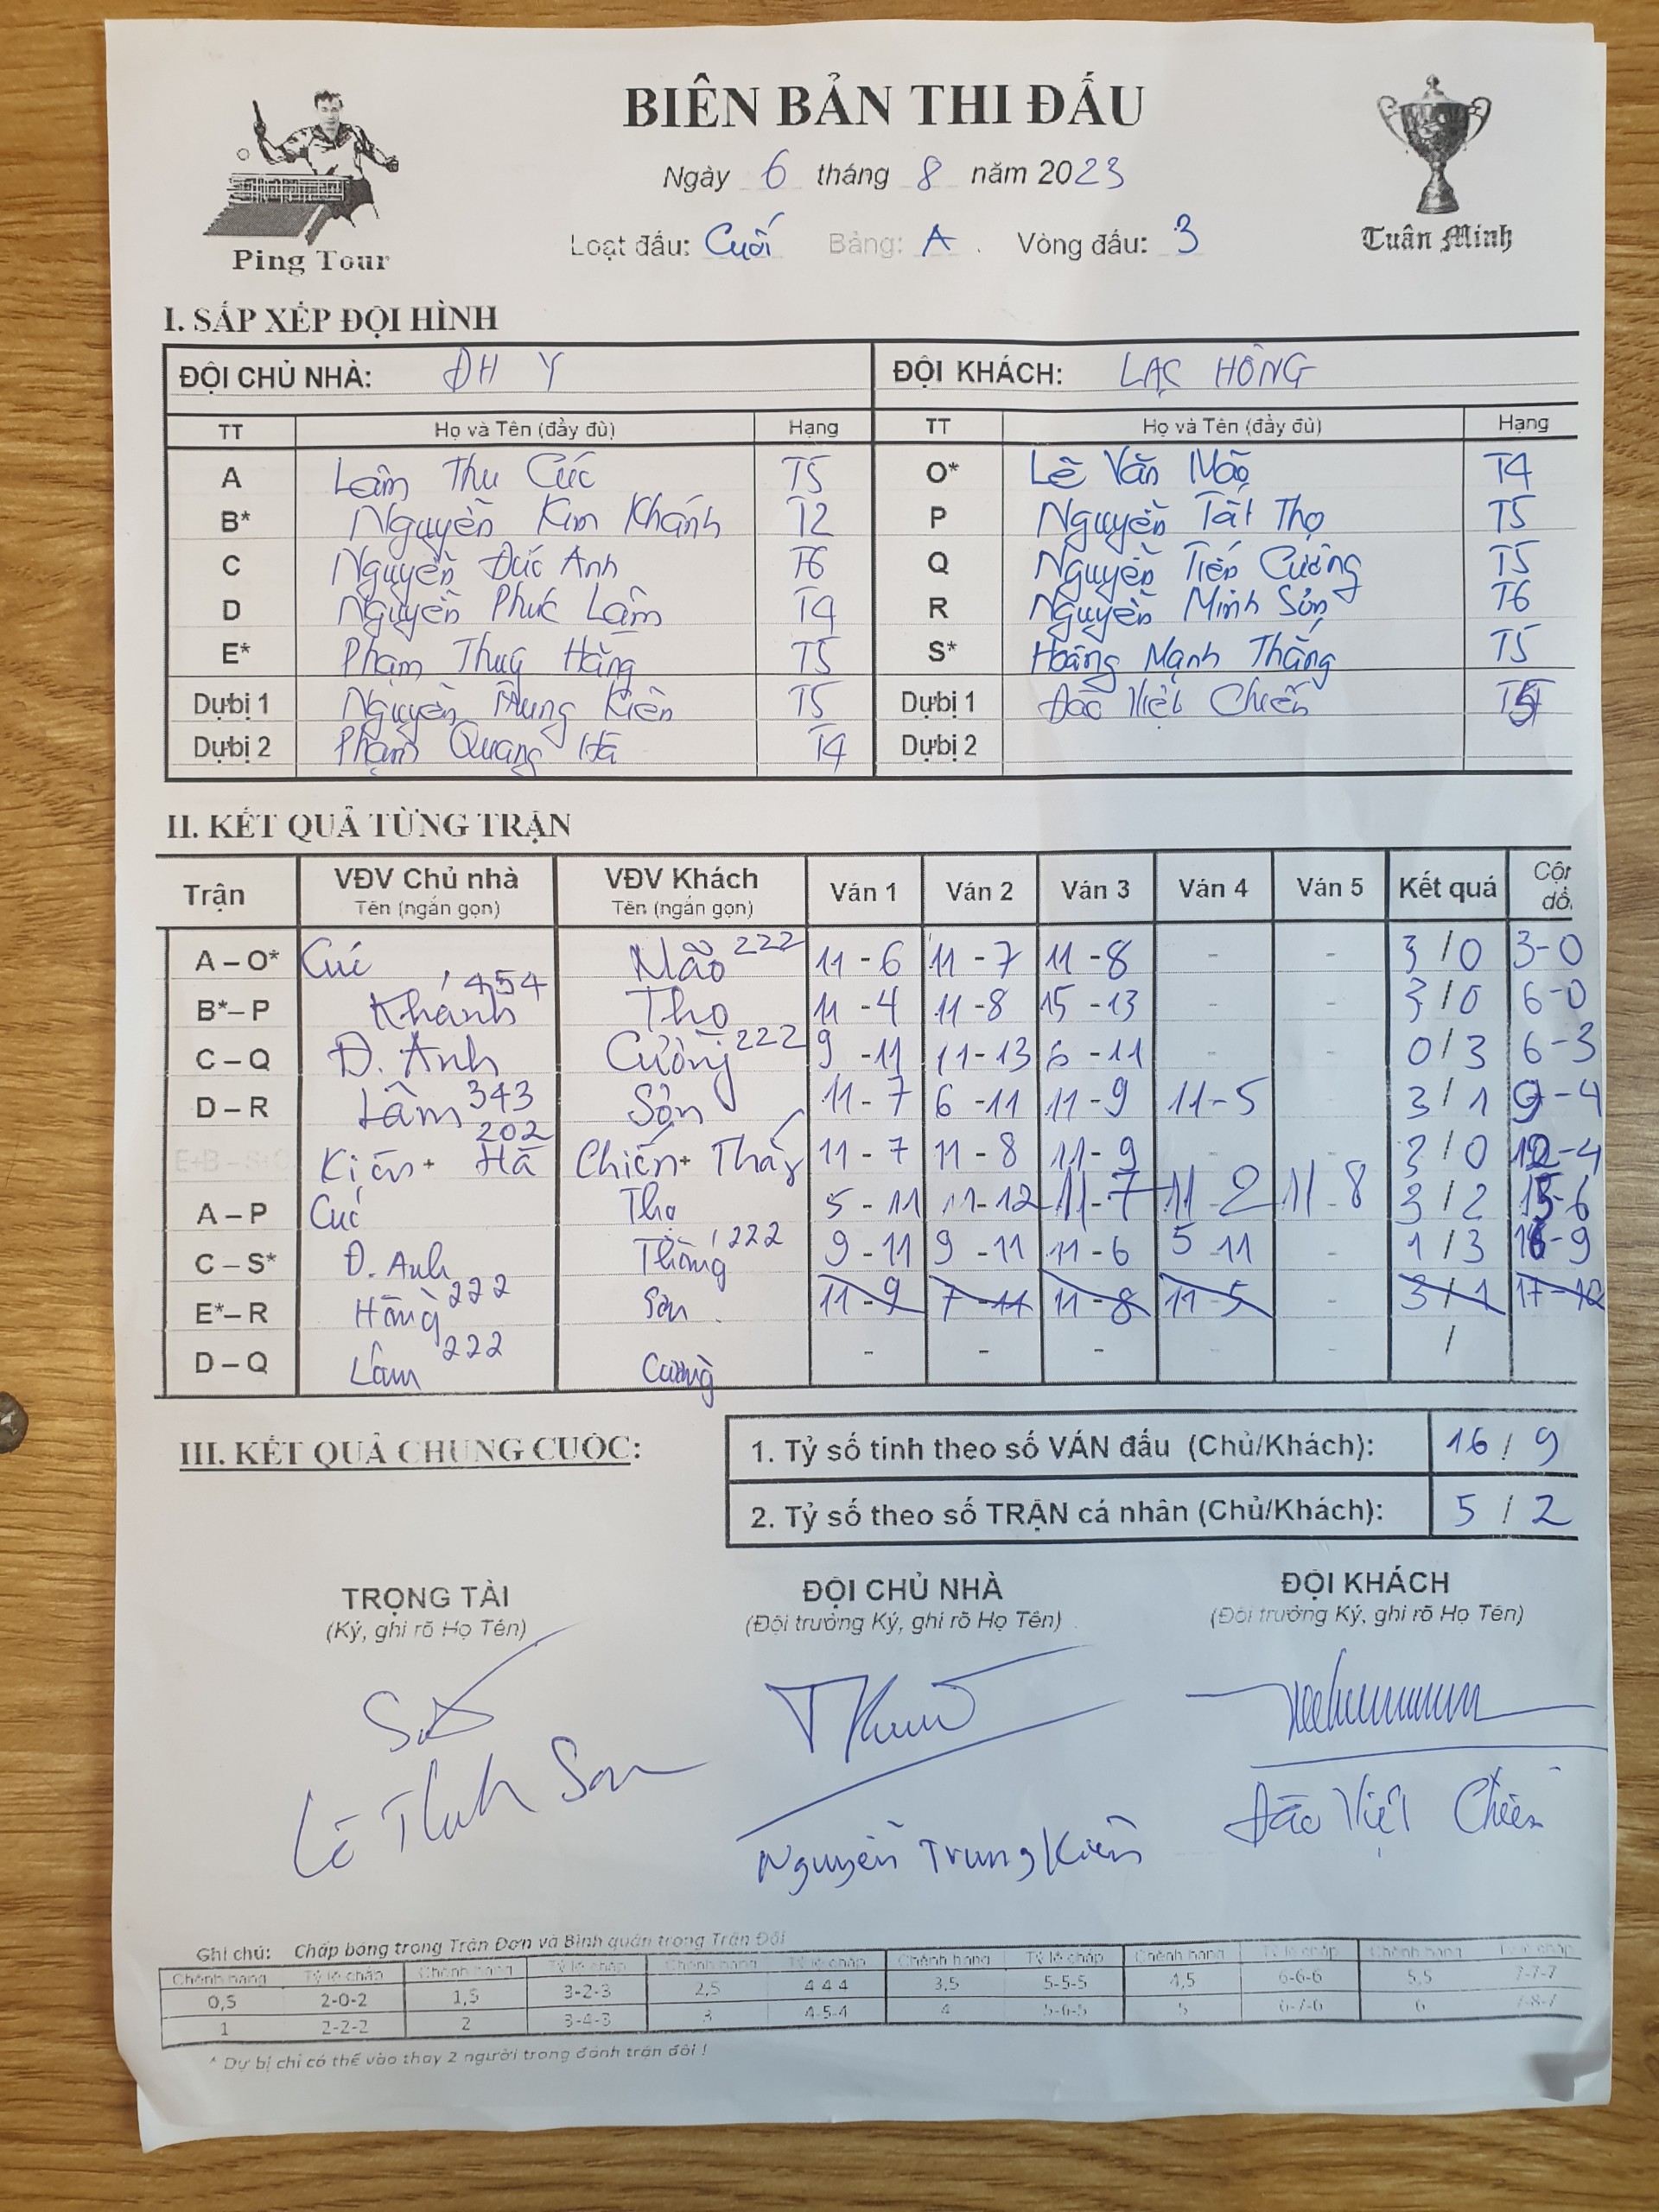 BIÊN BẢN THI ĐẤU
Ngày 6 tháng 8 năm 2023
Loạt đấu: Cuối Bảng: A . Vòng đấu: 3
Ping Tour
Tuấn Minh
I. SẮP XẾP ĐỘI HÌNH
ĐỘI CHỦ NHÀ: ĐH Y ĐỘI KHÁCH: LẠC HỒNG
TT Họ và Tên (đầy đủ) Hạng TT Họ và Tên (đầy đủ) Hạng
A Lâm Thu Cúc T5 O* Lê Văn Mão T4
B* Nguyễn Kim Khánh T2 P Nguyễn Tất Thọ T5
C Nguyễn Đức Anh T6 Q Nguyễn Tiến Cường T5
D Nguyễn Phúc Lâm T4 R Nguyễn Minh Sơn T6
E* Phạm Thuý Hằng T5 S* Hoàng Mạnh Thắng T5
Dự bị 1 Nguyễn Trung Kiên T5 Dự bị 1 Đào Việt Chiến
Dự bị 2 Phạm Quang Hà T4 Dự bị 2
II. KẾT QUẢ TỪNG TRẬN
Trận VĐV Chủ nhà VĐV Khách Ván 1 Ván 2 Ván 3 Ván 4 Ván 5 Kết quả
Tên (ngắn gọn) Tên (ngắn gọn)
A – O* Cúc Mão 222 11 - 6 11 - 7 11 - 8 - - 3 / 0 3-0
B* – P Khánh 454 Thọ 11 - 4 11 - 8 15 - 13 - - 3 / 0 6-0
C – Q Đ. Anh Cường 222 9 - 11 11 - 13 6 - 11 - - 0 / 3 6-3
D – R Lâm 343 Sơn 11 - 7 6 - 11 11 - 9 11 - 5 - 3 / 1 9-4
Kiên + Hà 202 Chiến + Thắng 11 - 7 11 - 8 11 - 9 - - 3 / 0 12-4
A – P Cúc Thọ 5 - 11 11 - 12 11 - 7 11 - 2 11 - 8 3 / 2 15-6
C – S* Đ. Anh Thắng 222 9 - 11 9 - 11 11 - 6 5 - 11 - 1 / 3 16-9
E* – R Hằng 222 Sơn 11 - 9 7 - 11 11 - 8 11 - 5 - 3 / 1
D – Q Lâm 222 Cường - - - - - /
III. KẾT QUẢ CHUNG CUỘC:
1. Tỷ số tính theo số VÁN đấu (Chủ/Khách): 16 / 9
2. Tỷ số theo số TRẬN cá nhân (Chủ/Khách): 5 / 2
TRỌNG TÀI ĐỘI CHỦ NHÀ ĐỘI KHÁCH
(Ký, ghi rõ Họ Tên) (Đội trưởng Ký, ghi rõ Họ Tên) (Đội trưởng Ký, ghi rõ Họ Tên)
Nguyễn Trung Kiên Đào Việt Chiến
Ghi chú: Chấp bóng trong Trận Đơn và Bình quân trong Trận Đôi
Chênh hạng Tỷ lệ chấp Chênh hạng Tỷ lệ chấp Chênh hạng Tỷ lệ chấp Chênh hạng Tỷ lệ chấp Chênh hạng Tỷ lệ chấp Chênh hạng Tỷ lệ chấp
0,5 2-0-2 1,5 3-2-3 2,5 4-4-4 3,5 5-5-5 4,5 6-6-6 5,5 7-7-7
1 2-2-2 2 3-4-3 3 4-5-4 4 5-6-5 5 6-7-6 6 7-8-7
* Dự bị chỉ có thể vào thay 2 người trong đánh trận đôi !